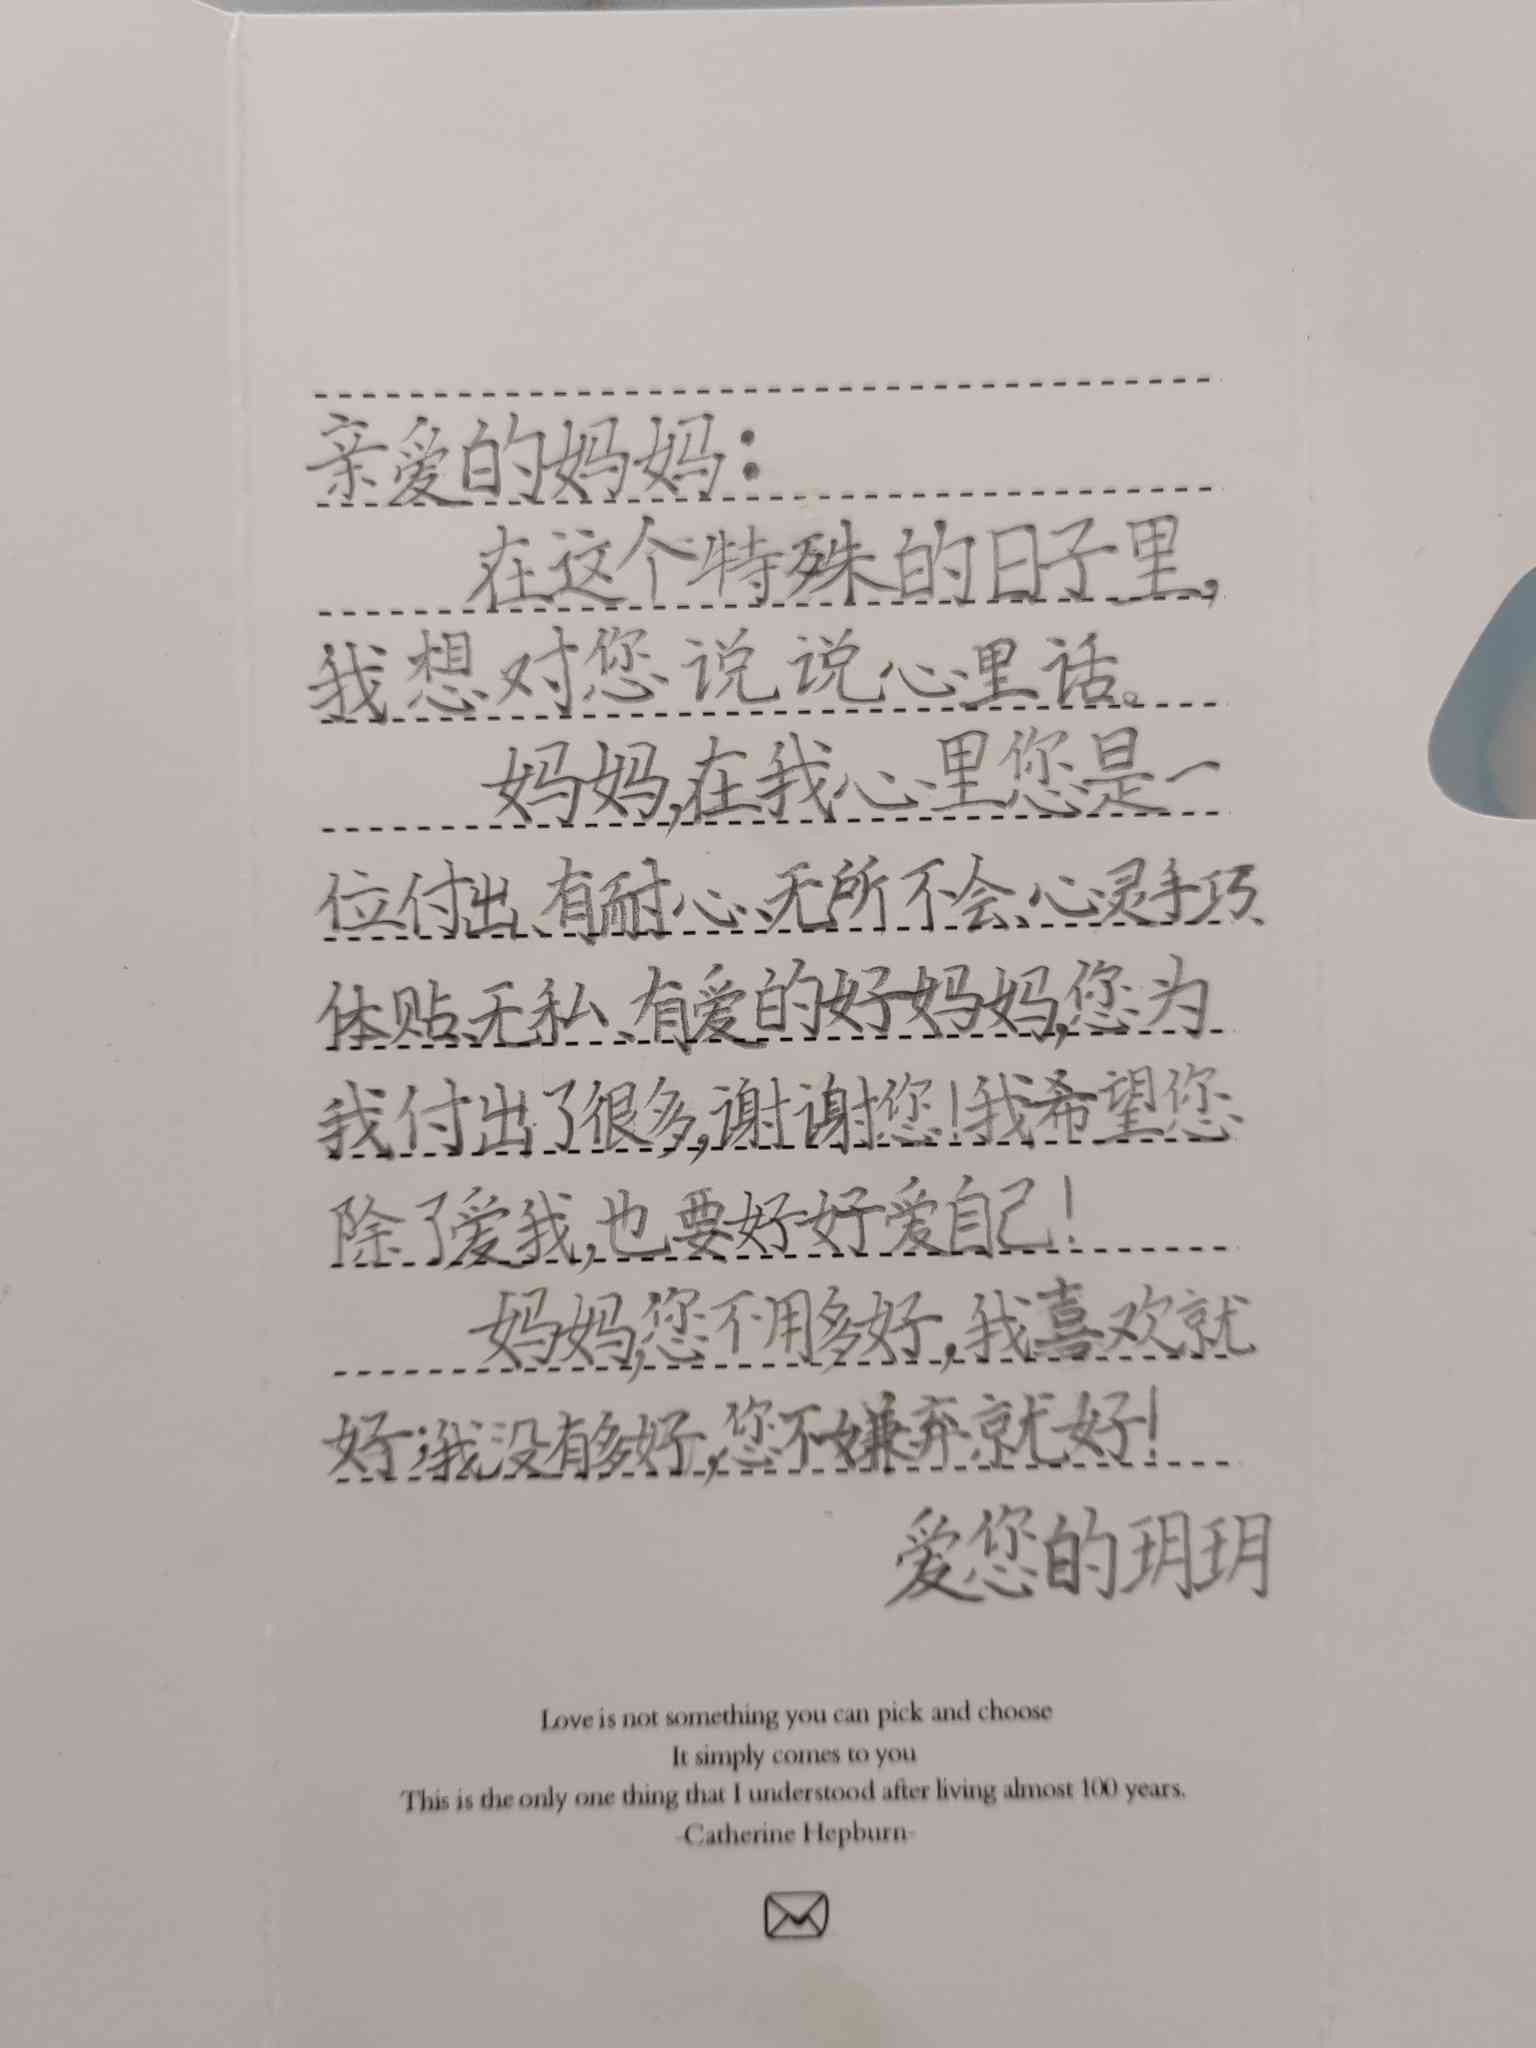 亲爱的妈妈：
在这个特殊的日子里，
我想对您说说心里话。
妈妈，在我心里您是一
位付出、有耐心、无所不会、心灵手巧、
体贴、无私、有爱的好妈妈，您为
我付出了很多，谢谢您！我希望您
除了爱我，也要好好爱自己！
妈妈，您不用多好，我喜欢就
好；我没有多好，您不嫌弃就好！
爱您的玥玥
Love is not something you can pick and choose
It simply comes to you
This is the only one thing that I understood after living almost 100 years.
-Catherine Hepburn-